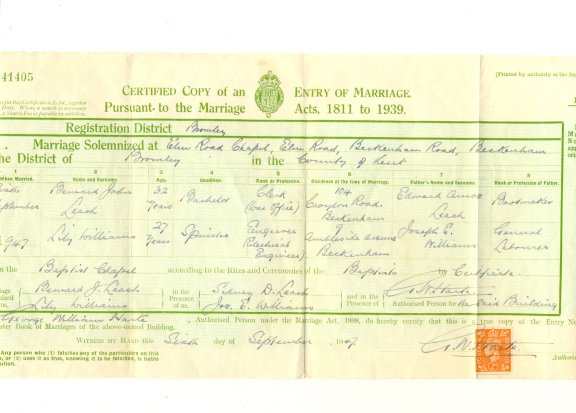 41405
CERTIFIED COPY of an ENTRY OF MARRIAGE.
Pursuant to the Marriage Acts, 1811 to 1939.
[Printed by authority of the
Registration District Bromley
Marriage Solemnized at Elm Road Chapel, Elm Road, Beckenham Road, Beckenham
the District of Bromley in the County of Kent
1 2 3 4 5 6 7 8
When Married. Name and Surname. Age Condition. Rank or Profession. Residence at the time of Marriage. Father's Name and Surname. Rank or Profession of Father.
September Bernard John Leach 32 years Bachelor Clerk (War Office) 104 Croydon Road. Beckenham Edward Amos Leach Bootmaker
1947 Lily Williams 27 years Spinster Engraver (Electrical Engineer) 9 Ambleside Avenue Beckenham Joseph E. Williams General Labourer
in the Baptist Chapel according to the Rites and Ceremonies of the Baptists by Certificate
Bernard J. Leach in the Presence of us, Sidney D. Leach and in the Presence of G. W. Harte
Lily Williams Jos. E. Williams Authorised Person for the said Building
George William Harte Authorised Person under the Marriage Act, 1898, do hereby certify that this is a true copy of the Entry No.
Register Book of Marriages of the above-named Building.
WITNESS MY HAND this Sixth day of September 1947. G. W. Harte
Any person who (1) falsifies any of the particulars on this
or (2) uses it as true, knowing it to be false, is liable
Prosecution.